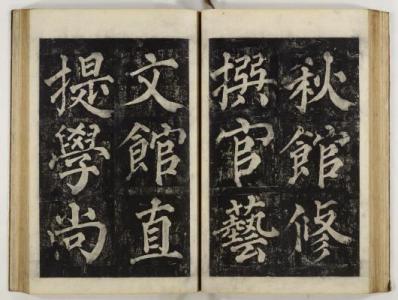 秋館修
撰官藝
文館直
提學尚